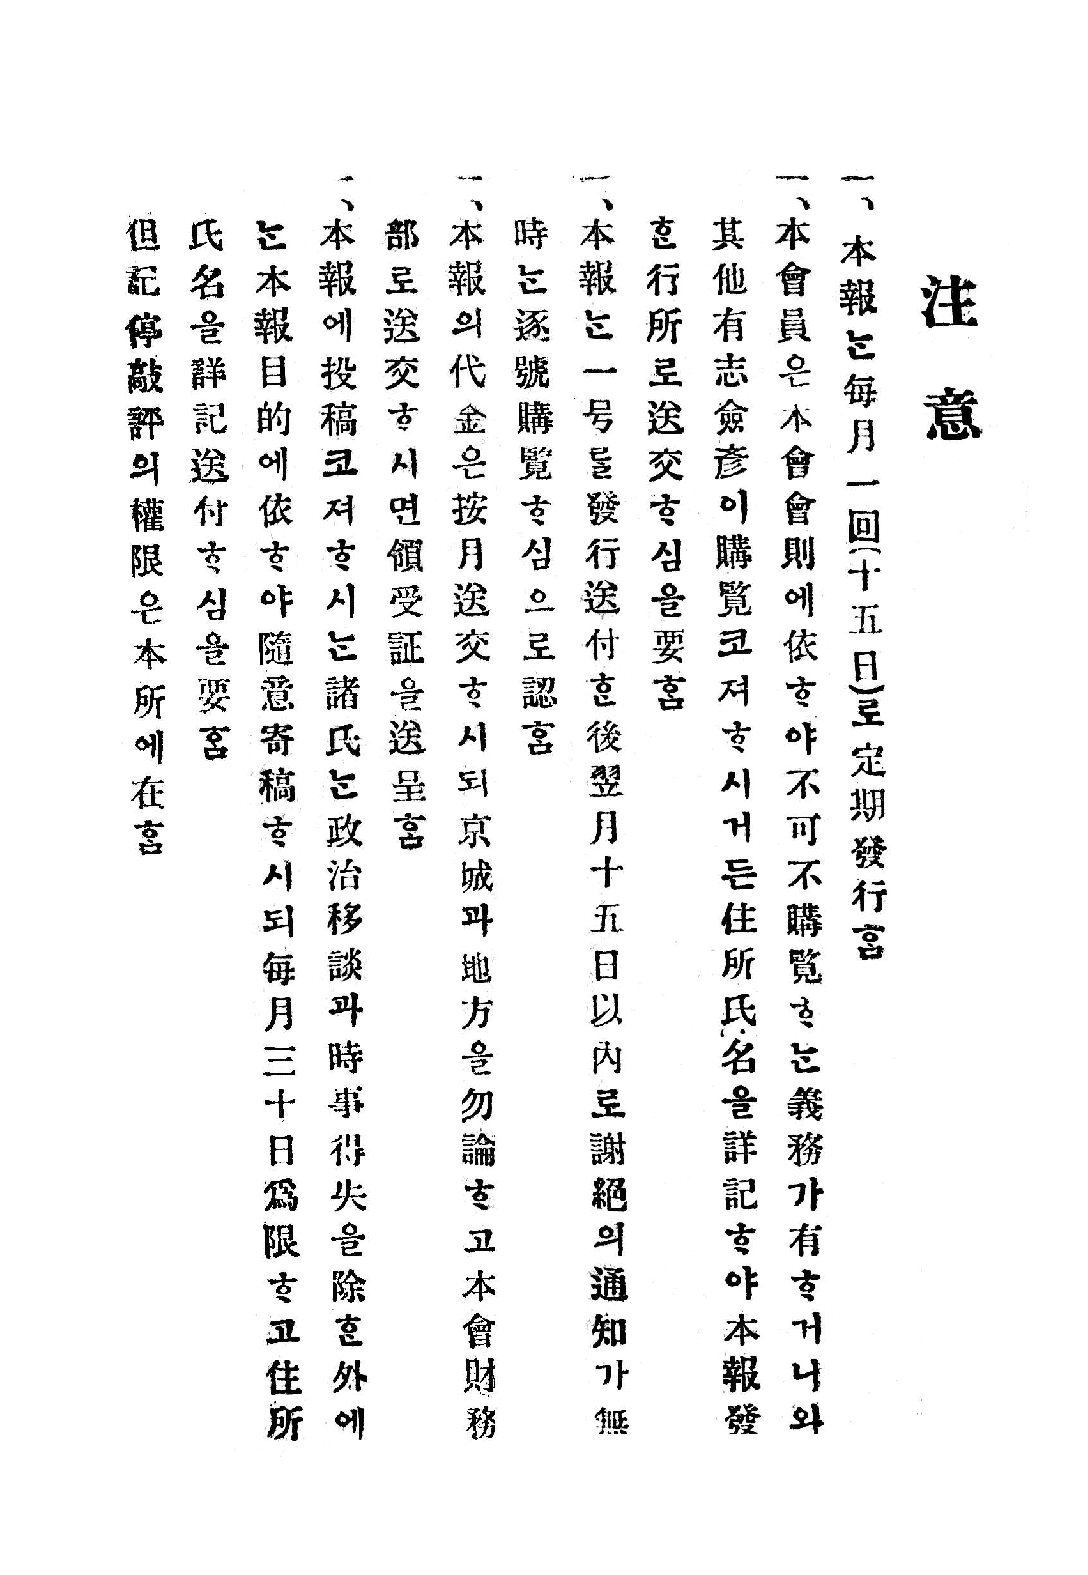 注意
一、本報는每月一回(十五日)로定期發行홈
一、本會員은本會會則에依ᄒᆞ야不可不購覽ᄒᆞ는義務가有ᄒᆞ거니와
其他有志僉彥이購覽코져ᄒᆞ시거든住所氏名을詳記ᄒᆞ야本報發
ᄒᆞᆫ行所로送交ᄒᆞ심을要홈
一、本報는一号를發行送付ᄒᆞᆫ後翌月十五日以內로謝絕의通知가無
時는逐號購覽ᄒᆞ심으로認홈
一、本報의代金은按月送交ᄒᆞ시되京城과地方을勿論ᄒᆞ고本會財務
部로送交ᄒᆞ시면領受証을送呈홈
一、本報에投稿코져ᄒᆞ시는諸氏는政治移談과時事得失을除ᄒᆞᆫ外에
는本報目的에依ᄒᆞ야隨意寄稿ᄒᆞ시되每月三十日爲限ᄒᆞ고住所
氏名을詳記送付ᄒᆞ심을要홈
但記停敲評의權限은本所에在홈